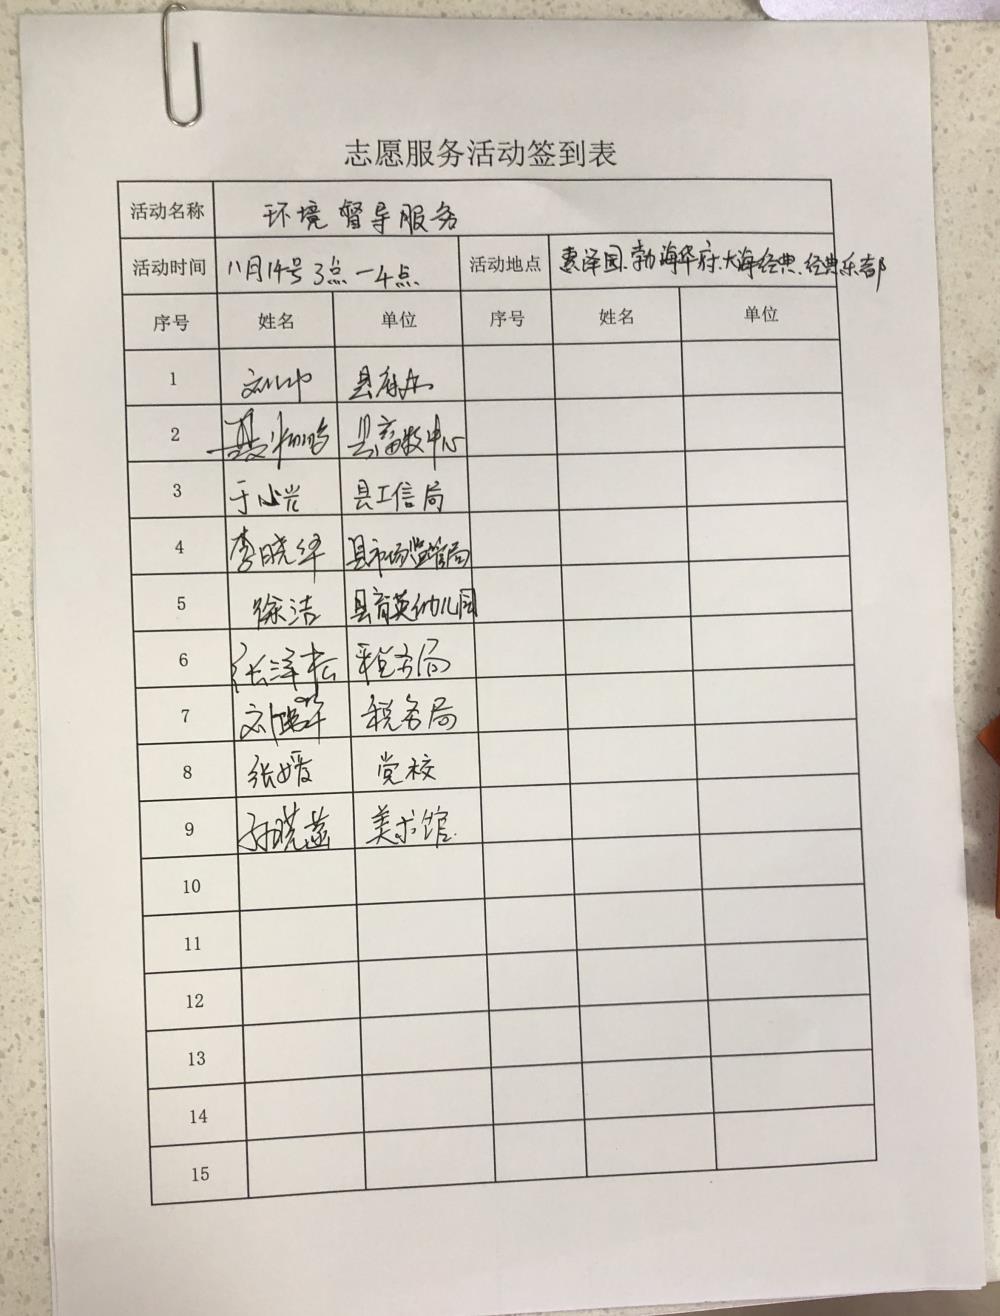 志愿服务活动签到表
活动名称 环境督导服务
活动时间 八月14号3点一4点 活动地点 惠泽园.渤海华府.大海经典.经典乐都
序号 姓名 单位 序号 姓名 单位
1 县府办
2 县畜牧中心
3 于心光 县工信局
4 李晓华 县市场监管局
5 徐洁 县育英幼儿园
6 张泽松 税务局
7 税务局
8 张媛 党校
9 孙晓蕊 美术馆.
10
11
12
13
14
15